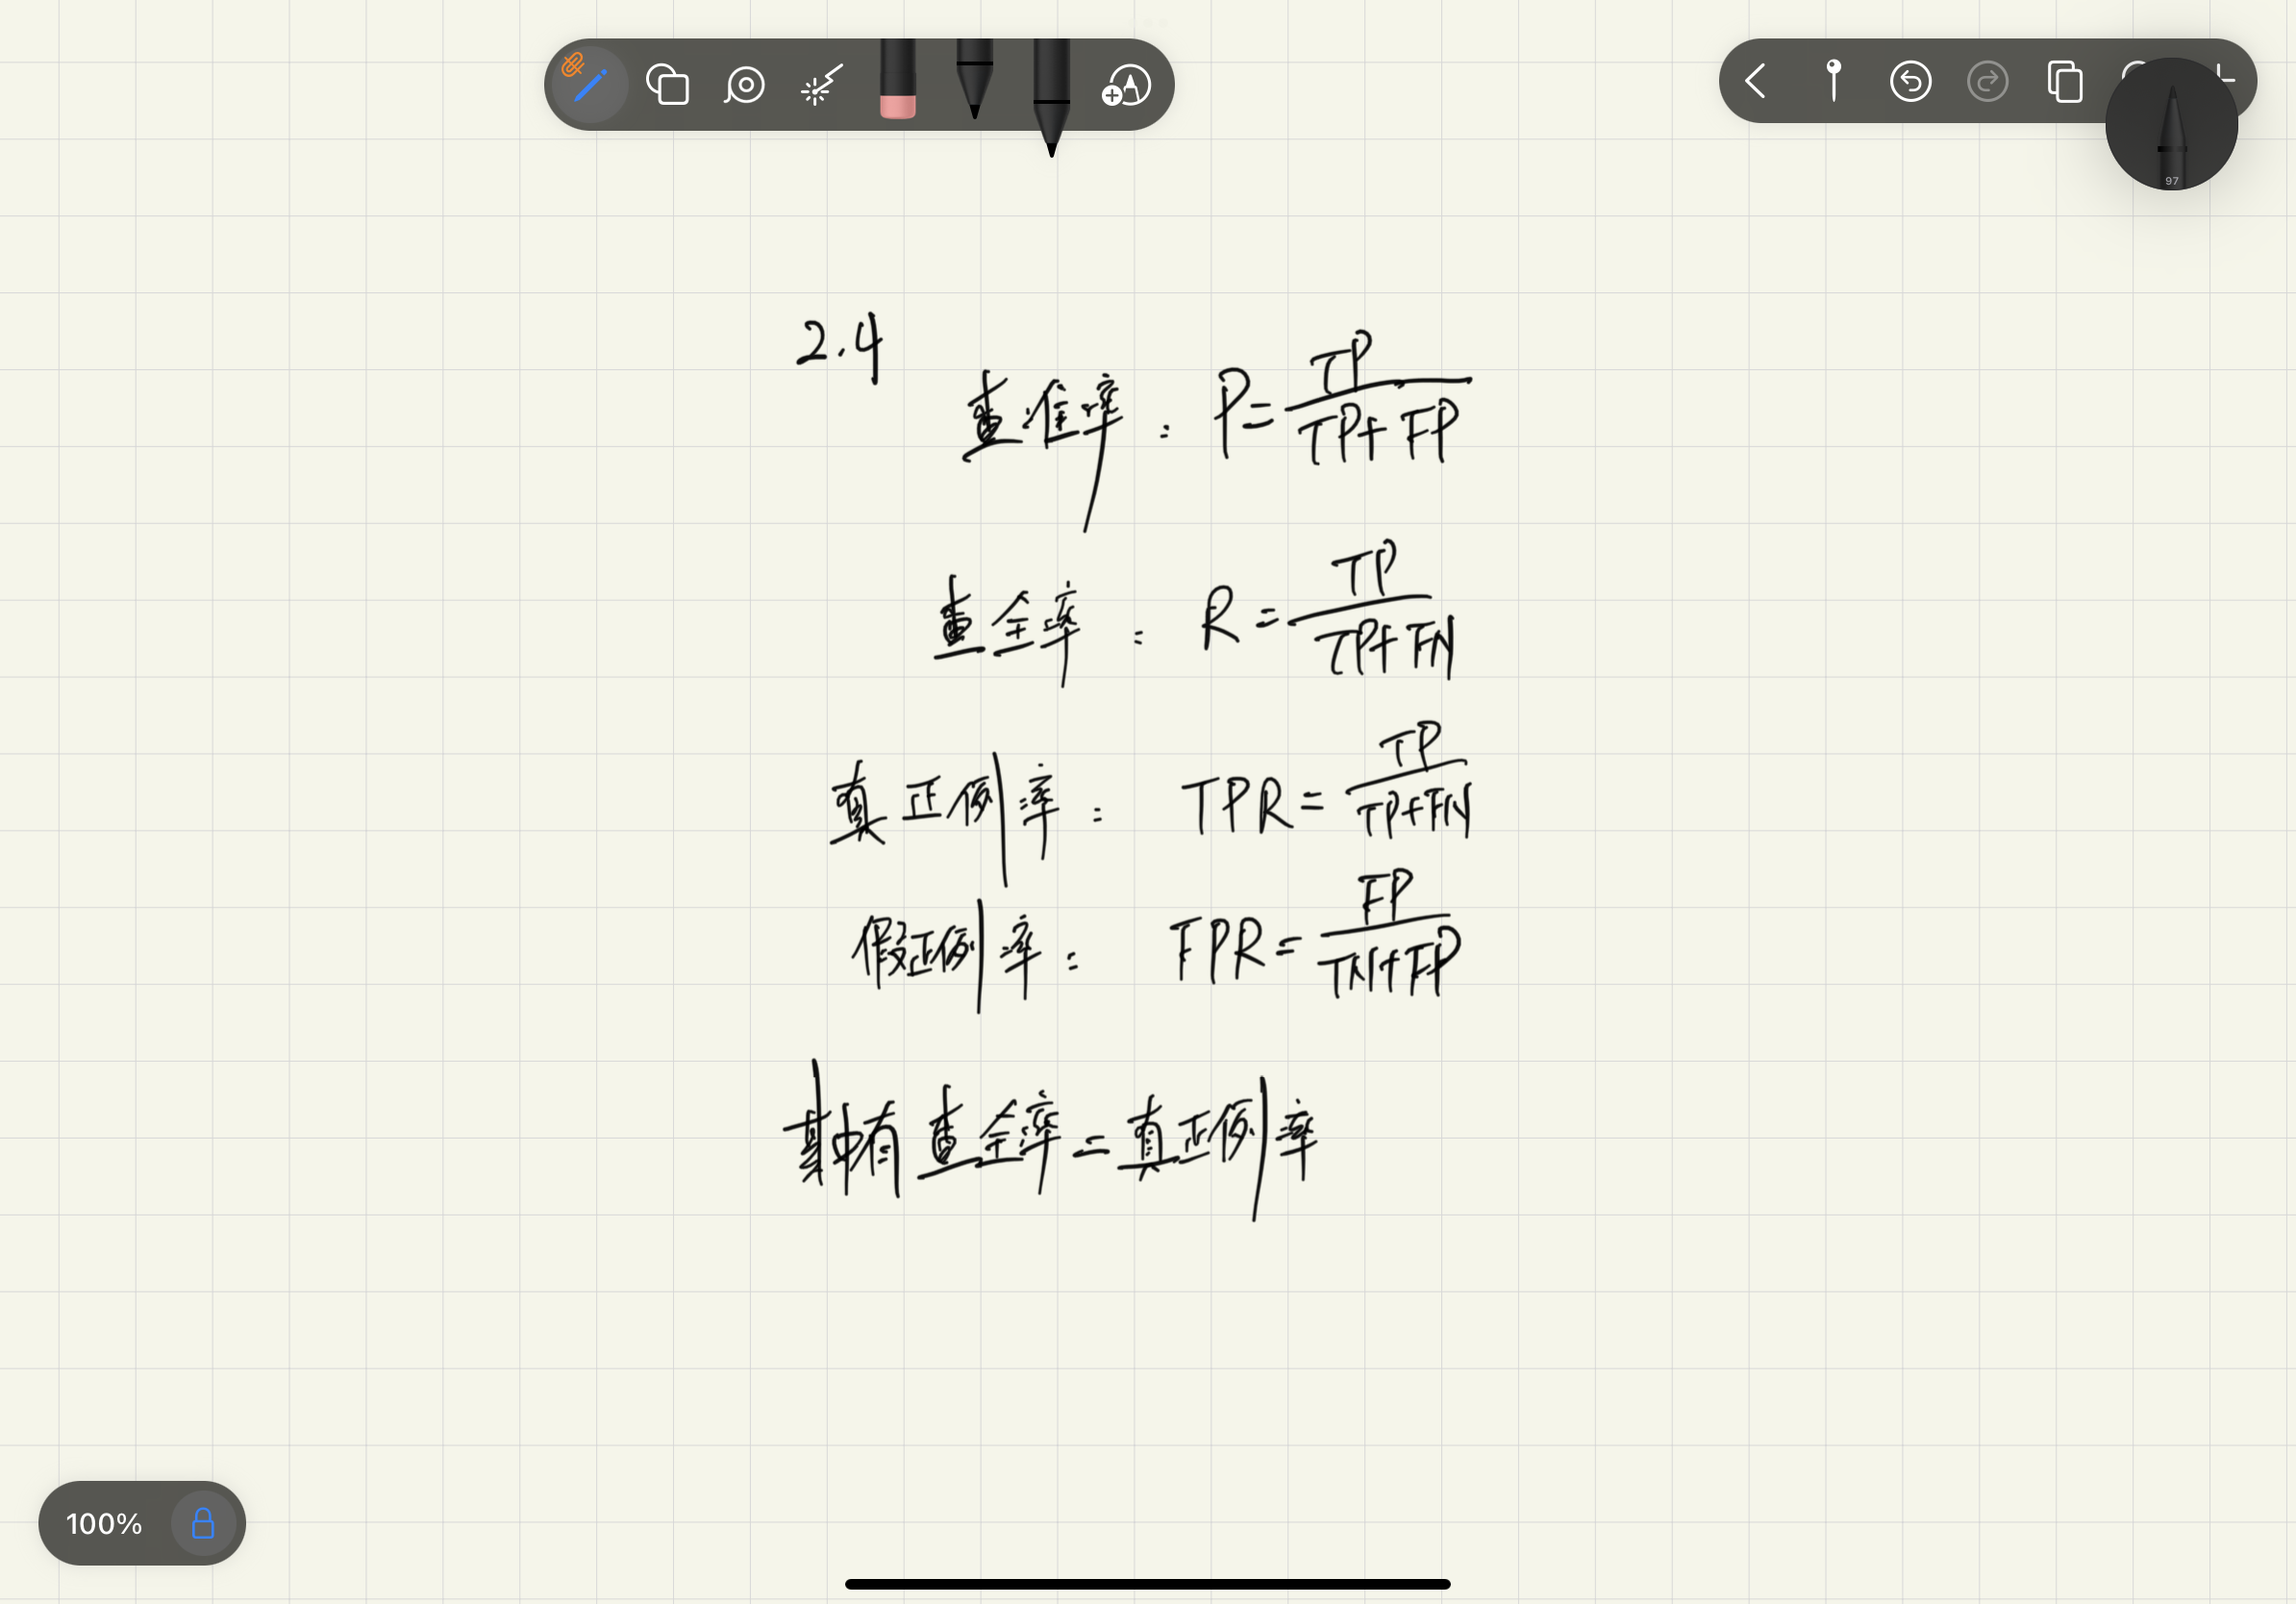 2.4
查准率: P = TP / (TP + FP)
查全率: R = TP / (TP + FN)
真正例率: TPR = TP / (TP + FN)
假正例率: FPR = FP / (TN + FP)
其中有查全率 = 真正例率
97
100%